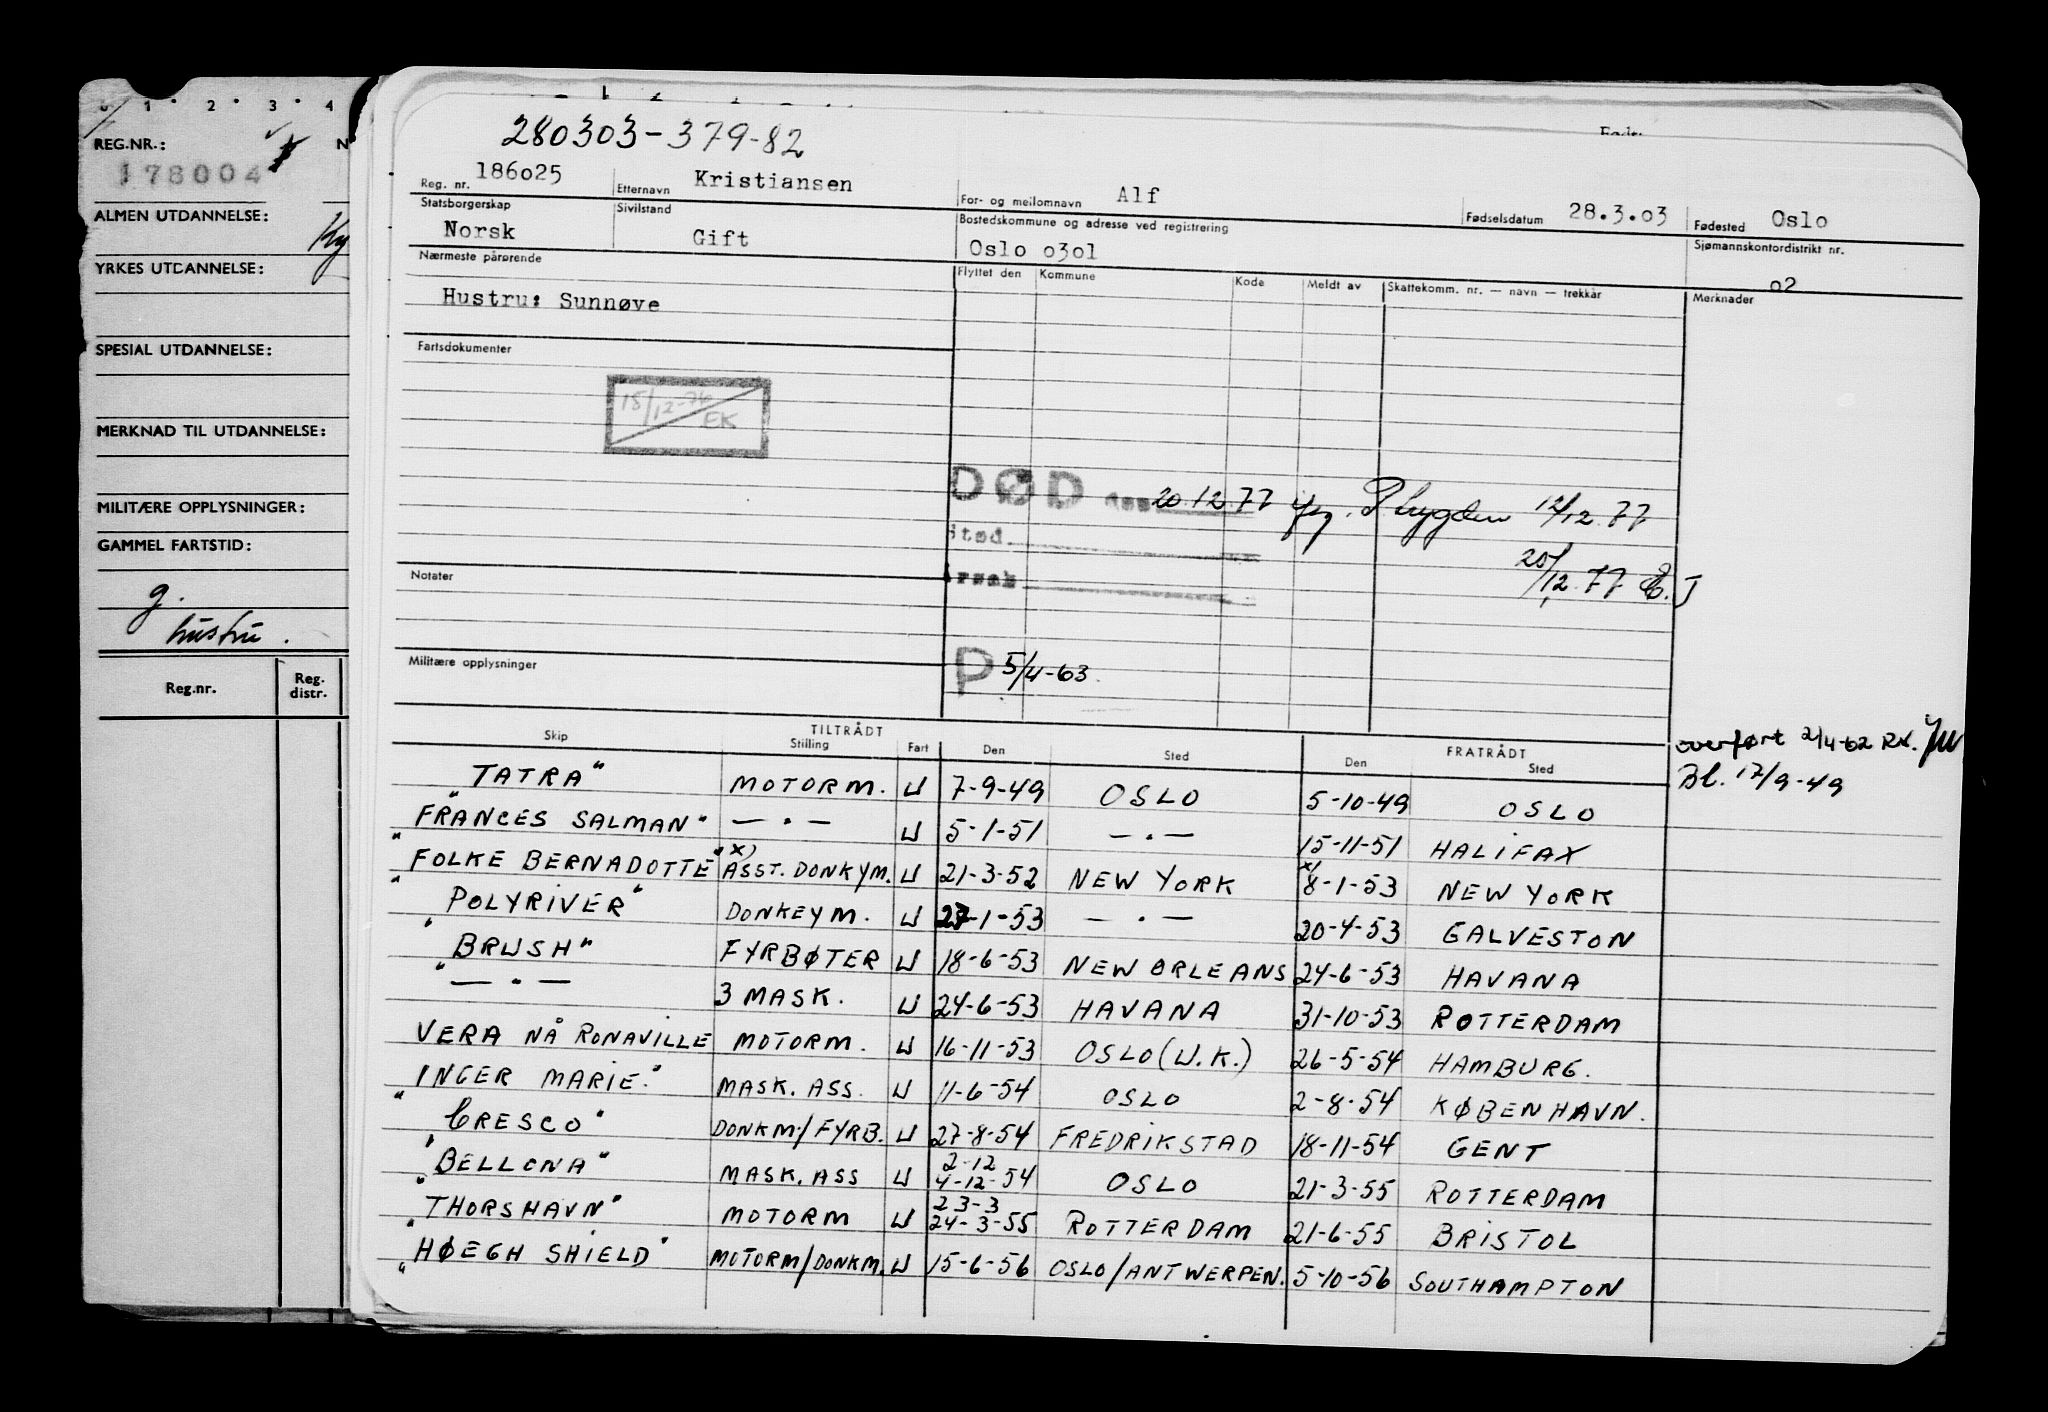 0 1 2 3 4
REG.NR.: N
178004
ALMEN UTDANNELSE:
YRKES UTDANNELSE:
SPESIAL UTDANNELSE:
MERKNAD TIL UTDANNELSE:
MILITÆRE OPPLYSNINGER:
GAMMEL FARTSTID:
g.
hustru.
Reg.nr. Reg. distr.
280303-379-82
Reg. nr. 186o25 Etternavn Kristiansen For- og mellomnavn Alf Fødselsdatum 28.3.o3 Fødested Oslo
Statsborgerskap Norsk Sivilstand Gift Bostedskommune og adresse ved registrering Oslo o3ol Sjømannskontordistrikt nr. o2
Nærmeste pårørende Flyttet den Kommune Kode Meldt av Skattekomm. nr. — navn — trekkår Merknader
Hustru: Sunnøve
Fartsdokumenter
15/12-76 EK
DØD 20.12.77 12/12.77
Sted
Årsak 20/12.77 E.J
Notater
Militære opplysninger
P 5/4-63.
overført 2/4-62
Bl. 17/9-49
TILTRÅDT FRATRÅDT
Skip Stilling Fart Den Sted Den Sted
"TATRA" MOTORM. U 7-9-49 OSLO 5-10-49 OSLO
"FRANCES SALMAN" — . — U 5-1-51 — . — 15-11-51 HALIFAX
"FOLKE BERNADOTTE" x) ASST. DONKYM. U 21-3-52 NEW YORK x) 8-1-53 NEW YORK
"POLYRIVER" DONKEYM. U 27-1-53 — . — 20-4-53 GALVESTON
"BRUSH" FYRBØTER U 18-6-53 NEW ORLEANS 24-6-53 HAVANA
— . — 3 MASK. U 24-6-53 HAVANA 31-10-53 ROTTERDAM
VERA NÅ RONAVILLE MOTORM. U 16-11-53 OSLO (U.K.) 26-5-54 HAMBURG.
"INGER MARIE." MASK. ASS. U 11-6-54 OSLO 2-8-54 KØBENHAVN.
"CRESCO" DONKM/FYRB. U 27-8-54 FREDRIKSTAD 18-11-54 GENT
"BELLONA" MASK. ASS U 2-12 4-12-54 OSLO 21-3-55 ROTTERDAM
"THORSHAVN" MOTORM U 23-3 24-3-55 ROTTERDAM 21-6-55 BRISTOL
"HØEGH SHIELD" MOTORM/DONKM. U 15-6-56 OSLO/ANTWERPEN. 5-10-56 SOUTHAMPTON